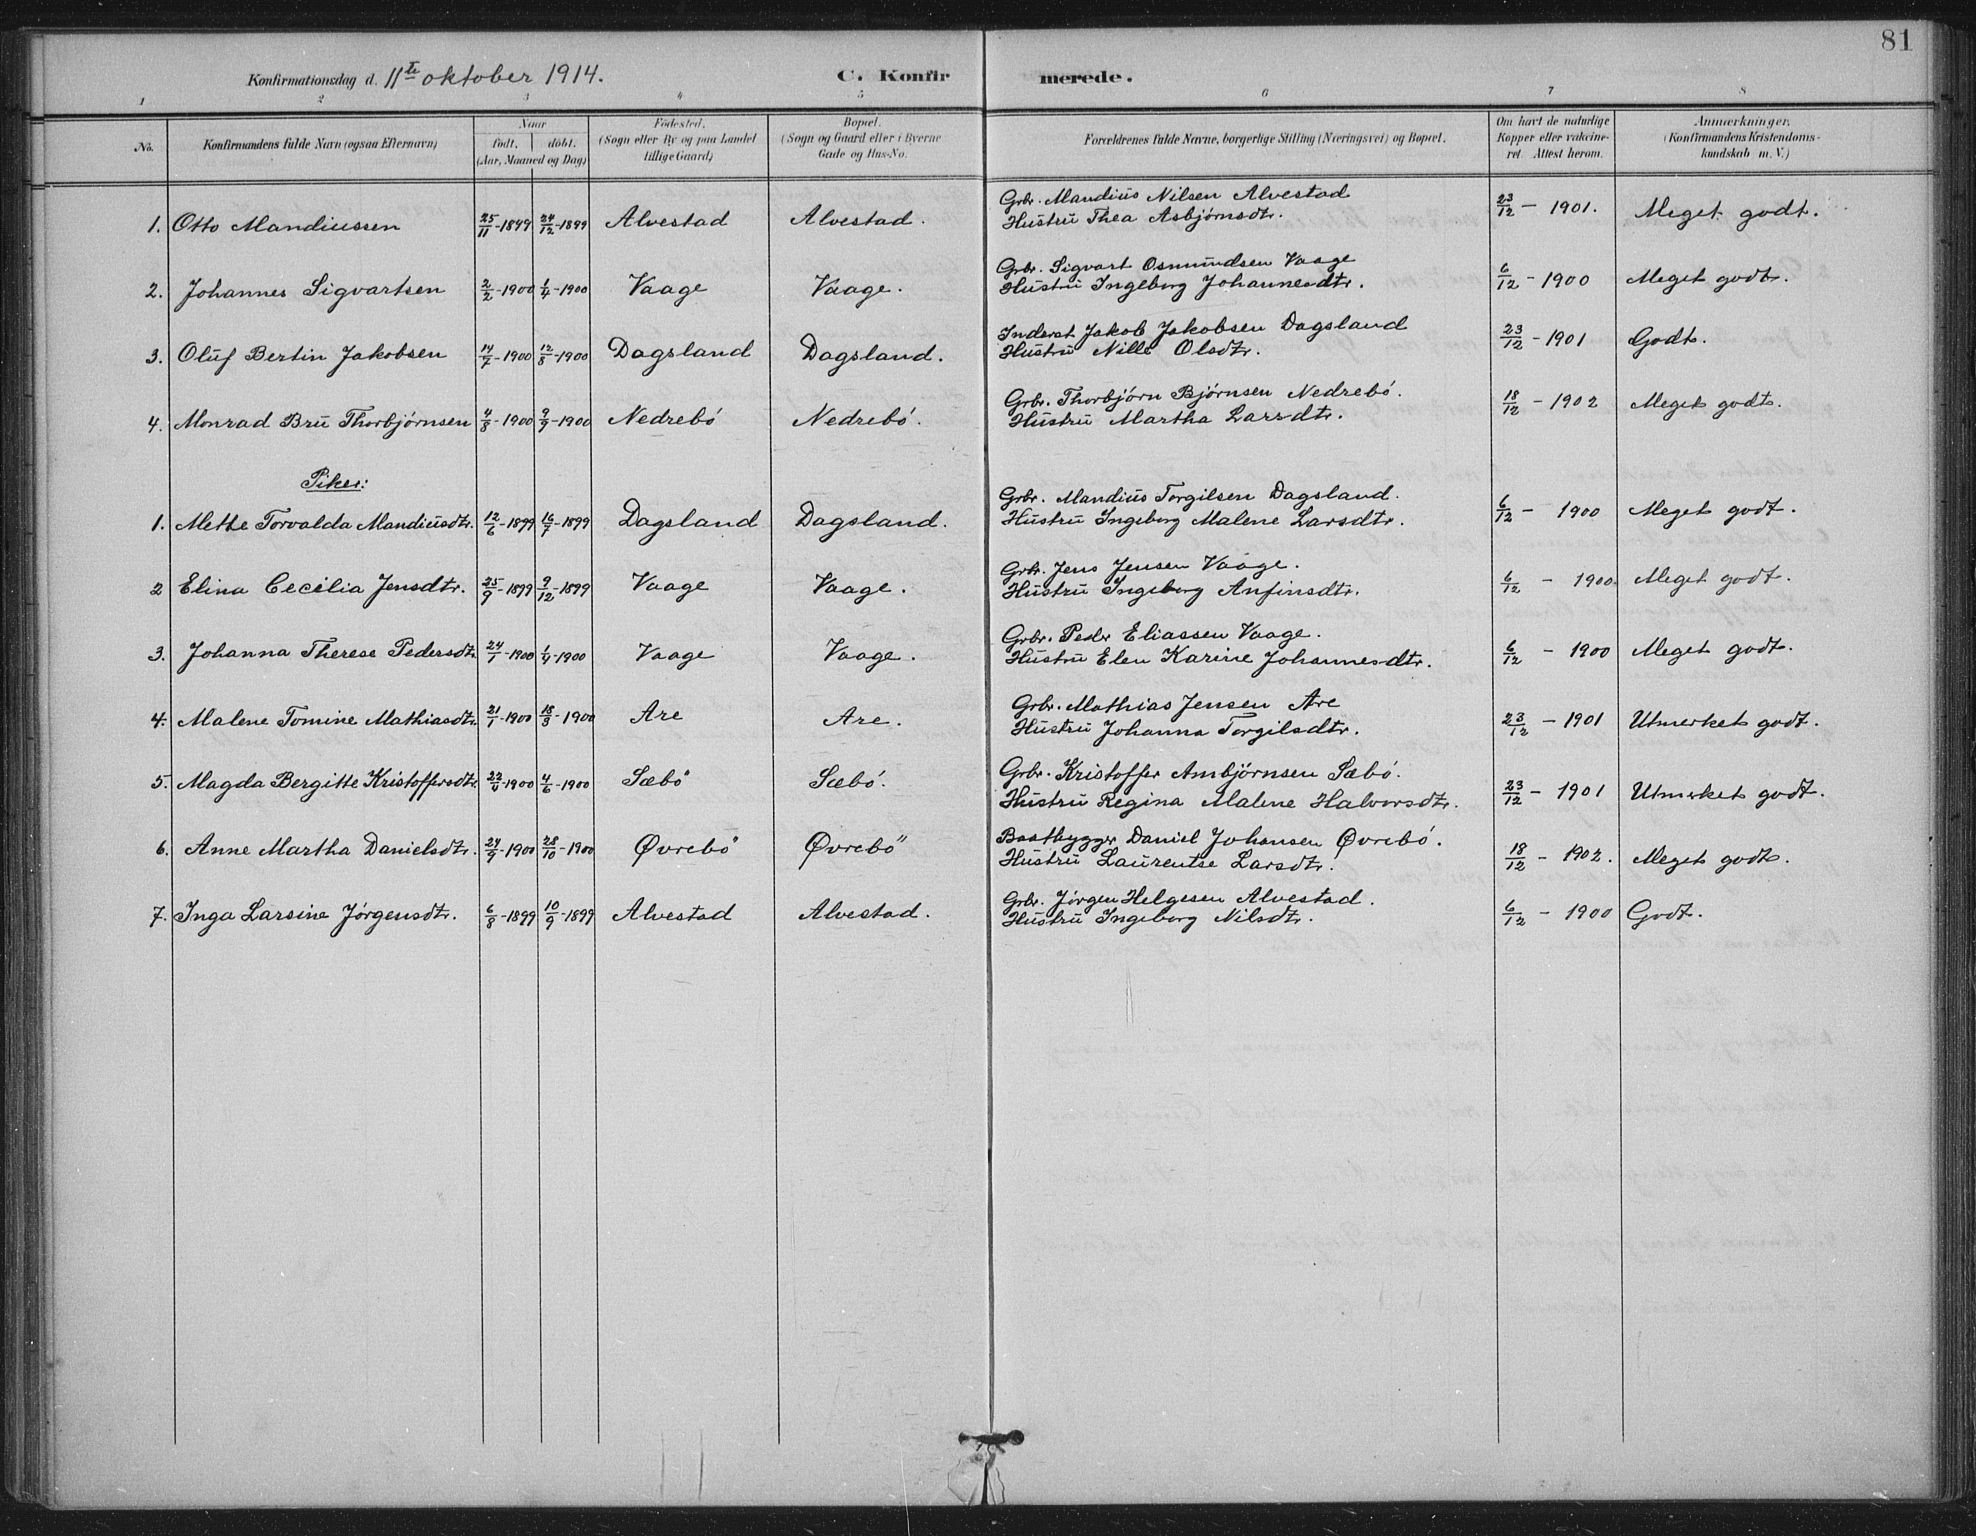 81
Konfirmationsdag d. 11te oktober 1914. C. Konfirmerede.
1 2 3 4 5 6 7 8
No. Konfirmandens fulde Navn (ogsaa Efternavn) Naar født. døbt. (Aar, Maaned og Dag) Fødested. (Sogn eller By og paa Landet tillige Gaard) Bopæl. (Sogn og Gaard eller i Byerne Gade og Hus-No. Forældrenes fulde Navne, borgerlige Stilling (Næringsvei) og Bopæl. Om havt de naturlige Kopper eller vakcineret. Attest herom. Anmærkninger. (Konfirmandens Kristendomskundskab m. V.)
1. Otto Mandiussen 25/11-1899 24/12-1899 Alvestad Alvestad. Grbr. Mandius Nilsen Alvestad 23/12 - 1901. Meget godt.
Hustru Thea Asbjørnsdtr.
2. Johannes Sigvartsen 2/2-1900 1/4-1900 Vaage Vaage. Grbr. Sigvart Osmundsen Vaage 6/12 - 1900 Meget godt.
Hustru Ingeborg Johannesdtr.
3. Oluf Bertin Jakobsen 14/7-1900 12/8-1900 Dagsland Dagsland. Inderst Jakob Jakobsen Dagsland 23/12 - 1901 Godt.
Hustru Nille Olsdtr.
4. Monrad Bru Thorbjørnsen 4/8-1900 9/9-1900 Nedrebó Nedrebó. Grbr. Thorbjørn Bjørnsen Nedrebó. 18/12 - 1902 Meget godt.
Hustru Martha Larsdtr.
Piker:
1. Methe Torvalda Mandiusdtr. 12/6-1899 16/7-1899 Dagsland Dagsland. Grbr. Mandius Torgilsen Dagsland. 6/12 - 1900 Meget godt.
Hustru Ingeborg Malene Larsdtr.
2 Elina Cecilia Jensdtr. 25/9-1899 9/12-1899 Vaage Vaage. Grbr. Jens Jensen Vaage. 6/12 - 1900. Meget godt.
Hustru Ingeborg Anfinsdtr.
3. Johanna Therese Pedersdtr. 24/1-1900 1/4-1900 Vaage Vaage. Grbr. Peder Eliassen Vaage. 6/12 - 1900 Meget godt.
Hustru Elen Karine Johannesdtr.
4. Malene Tomine Mathiasdtr. 21/1-1900 18/3-1900 Are Are. Grbr. Mathias Jensen Are 23/12 - 1901 Utmerket godt.
Hustru Johanna Torgilsdtr.
5. Magda Bergitte Kristoffersdtr. 22/4-1900 4/6-1900 Sæbó Sæbó. Grbr. Kristoffer Ambjörnsen Sæbó. 23/12 - 1901 Utmerket godt.
Hustru Regina Malene Halvorsdtr.
6. Anne Martha Danielsdtr. 24/9-1900 28/10-1900 Øvrebö Øvrebö Baatbygger Daniel Johansen Øvrebó. 18/12 - 1902. Meget godt.
Hustru Laurentse Larsdtr.
7. Inga Larsine Jørgensdtr. 6/8-1899 10/9-1899 Alvestad Alvestad. Grbr. Jørgen Helgesen Alvestad. 6/12 - 1900 Godt.
Hustru Ingeborg Nilsdtr.